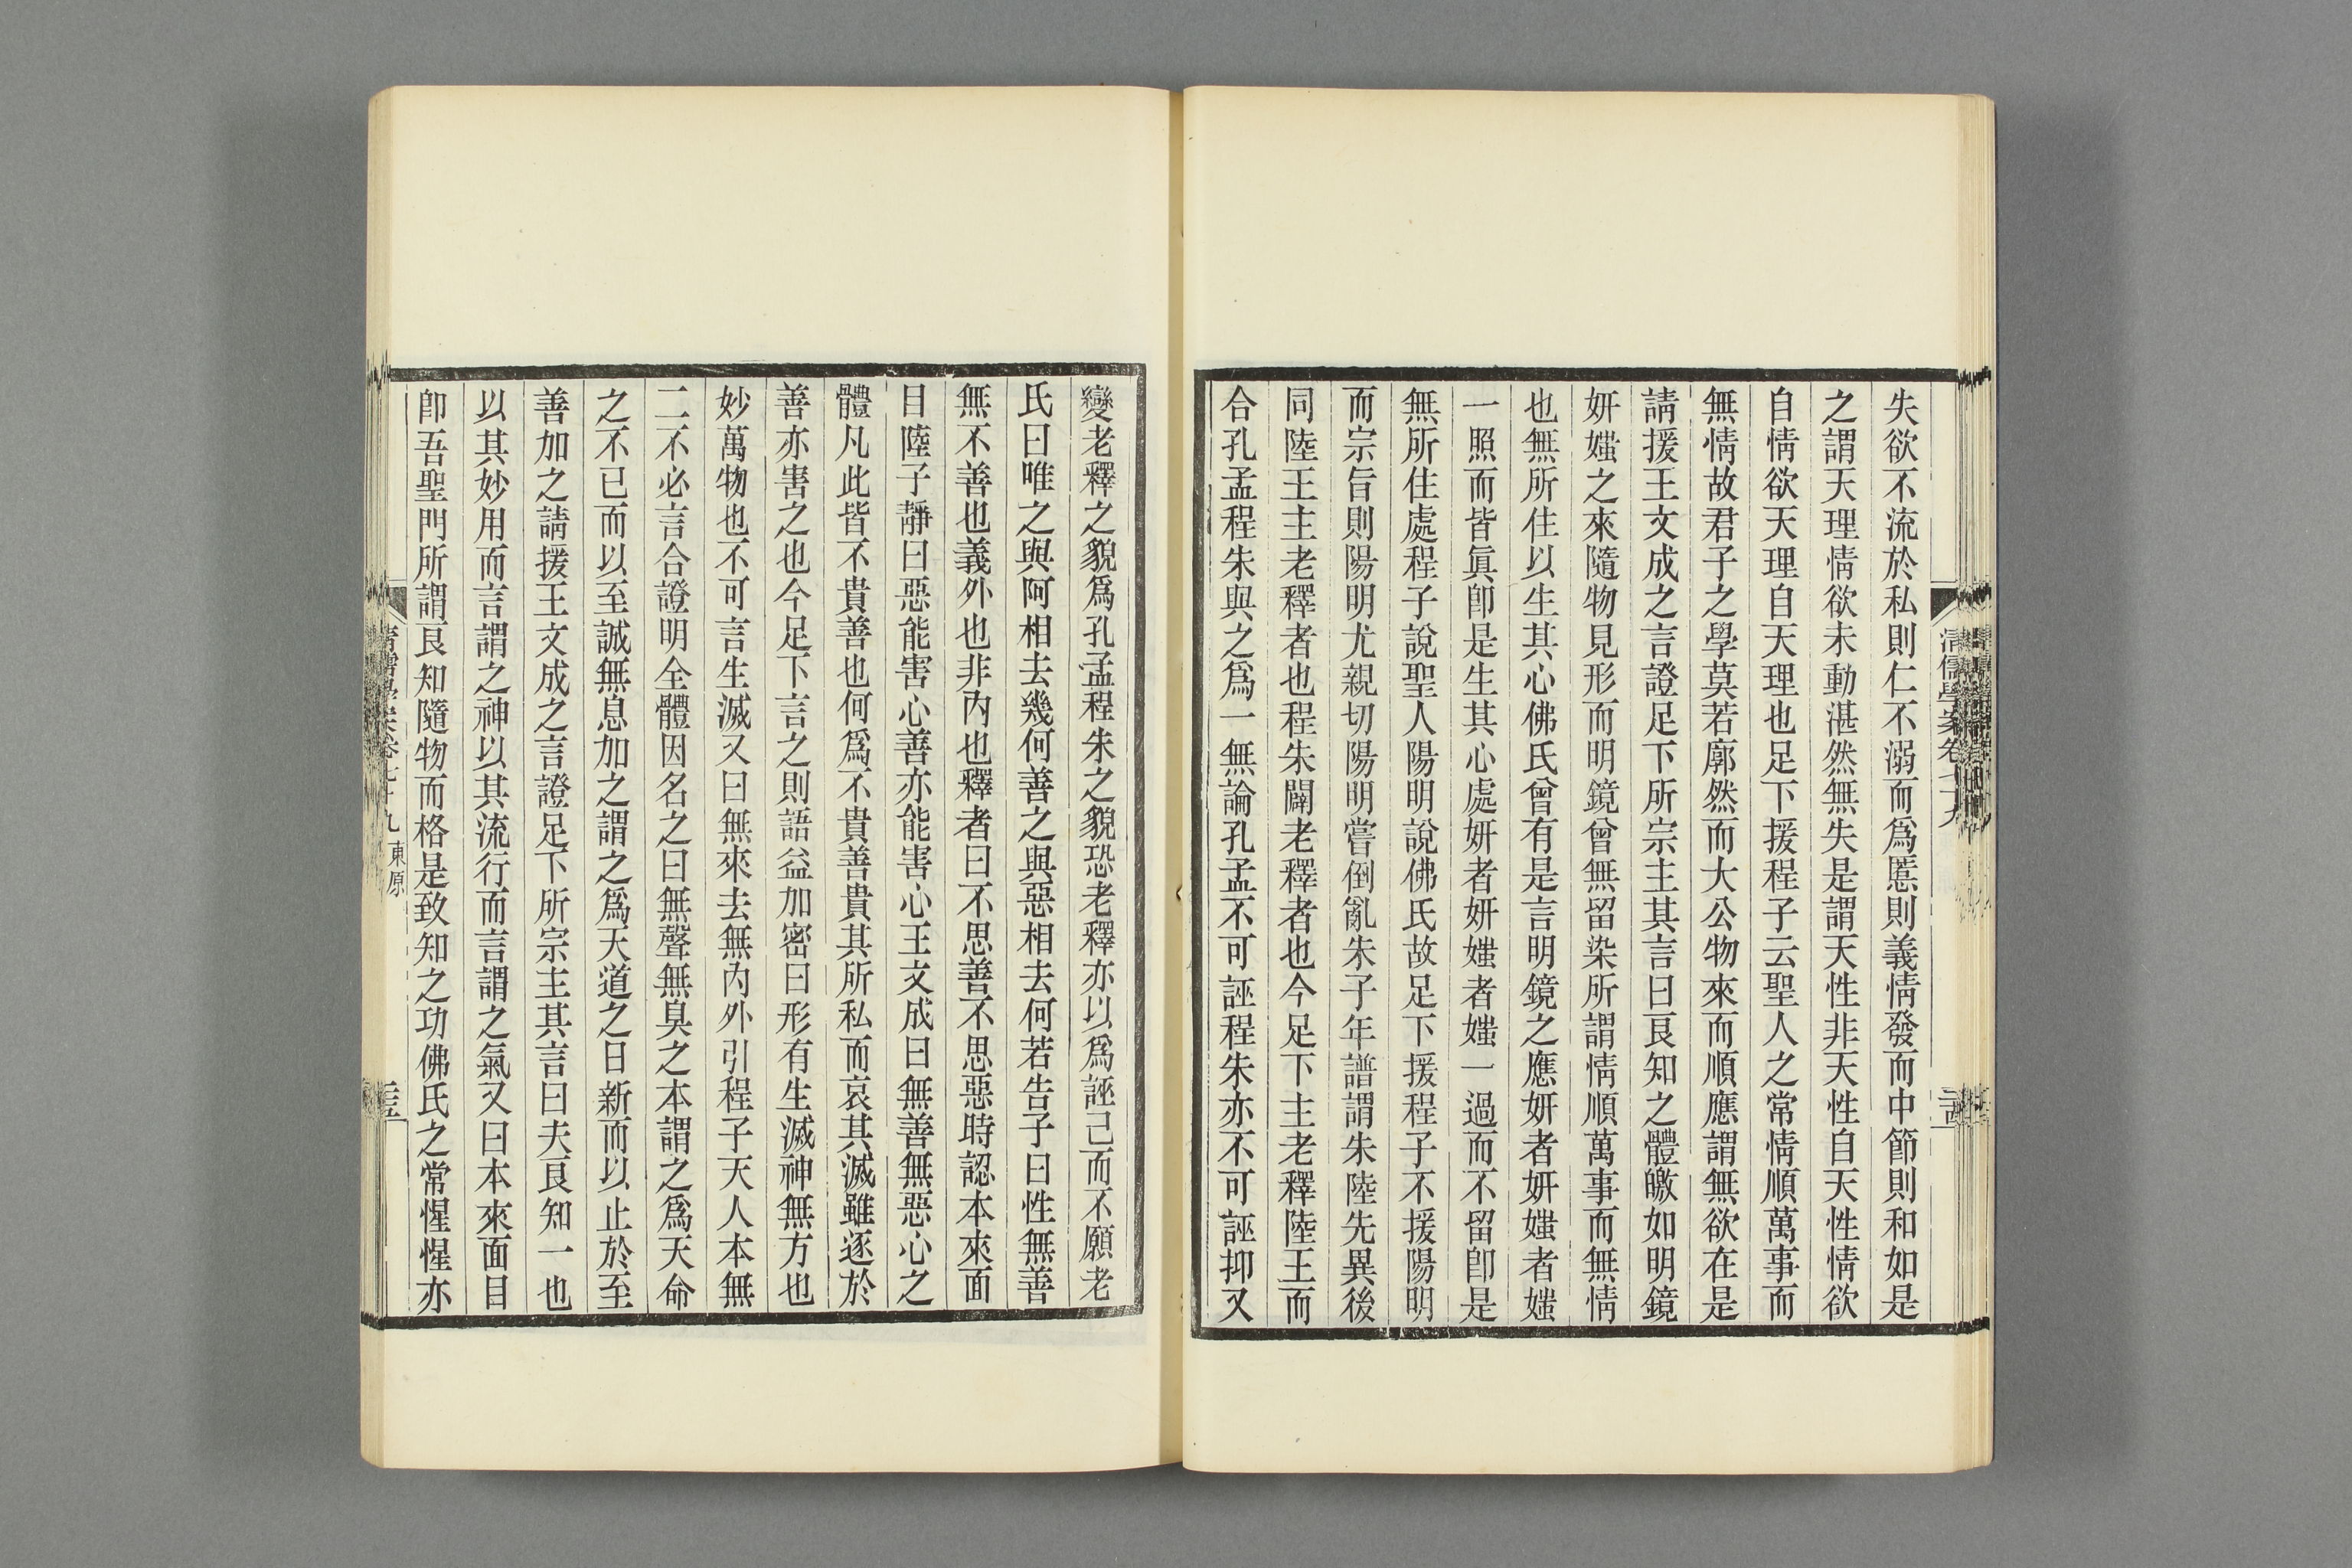 失欲不流於私則仁不溺而爲慝則義情發而中節則和如是
之謂天理情欲未動湛然無失是謂天性非天性自天性情欲
自情欲天理自天理也足下援程子云聖人之常情順萬事而
無情故君子之學莫若廓然而大公物來而順應謂無欲在是
請援王文成之言證足下所宗主其言曰良知之體皦如明鏡
妍媸之來隨物見形而明鏡曾無留染所謂情順萬事而無情
也無所住以生其心佛氏曾有是言明鏡之應妍者妍媸者媸
一照而皆眞卽是生其心處妍者妍媸者媸一過而不留卽是
無所住處程子說聖人陽明說佛氏故足下援程子不援陽明
而宗旨則陽明尤親切陽明嘗倒亂朱子年譜謂朱陸先異後
同陸王主老釋者也程朱闢老釋者也今足下主老釋陸王而
合孔孟程朱與之爲一無論孔孟不可誣程朱亦不可誣抑又
清儒學案卷七十九
變老釋之貌爲孔孟程朱之貌恐老釋亦以爲誣己而不願老
氏曰唯之與阿相去幾何善之與惡相去何若告子曰性無善
無不善也義外也非內也釋者曰不思善不思惡時認本來面
目陸子靜曰惡能害心善亦能害心王文成曰無善無惡心之
體凡此皆不貴善也何爲不貴善貴其所私而哀其滅雖逐於
善亦害之也今足下言之則語益加密曰形有生滅神無方也
妙萬物也不可言生滅又曰無來去無內外引程子天人本無
二不必言合證明全體因名之曰無聲無臭之本謂之爲天命
之不已而以至誠無息加之謂之爲天道之日新而以止於至
善加之請援王文成之言證足下所宗主其言曰夫良知一也
以其妙用而言謂之神以其流行而言謂之氣又曰本來面目
卽吾聖門所謂良知隨物而格是致知之功佛氏之常惺惺亦
清儒學案卷七十九 東原